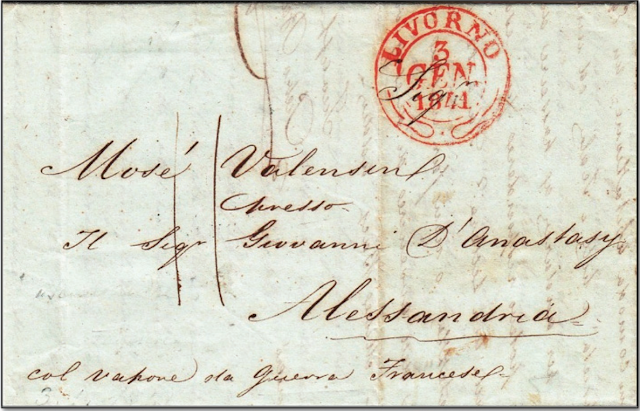 LIVORNO
3
GEN
1841
Sigr
Mosé Valensin
Presso
Il Sigr Giovanni D'Anastasy
Alessandria
col vapore da guerra Francese